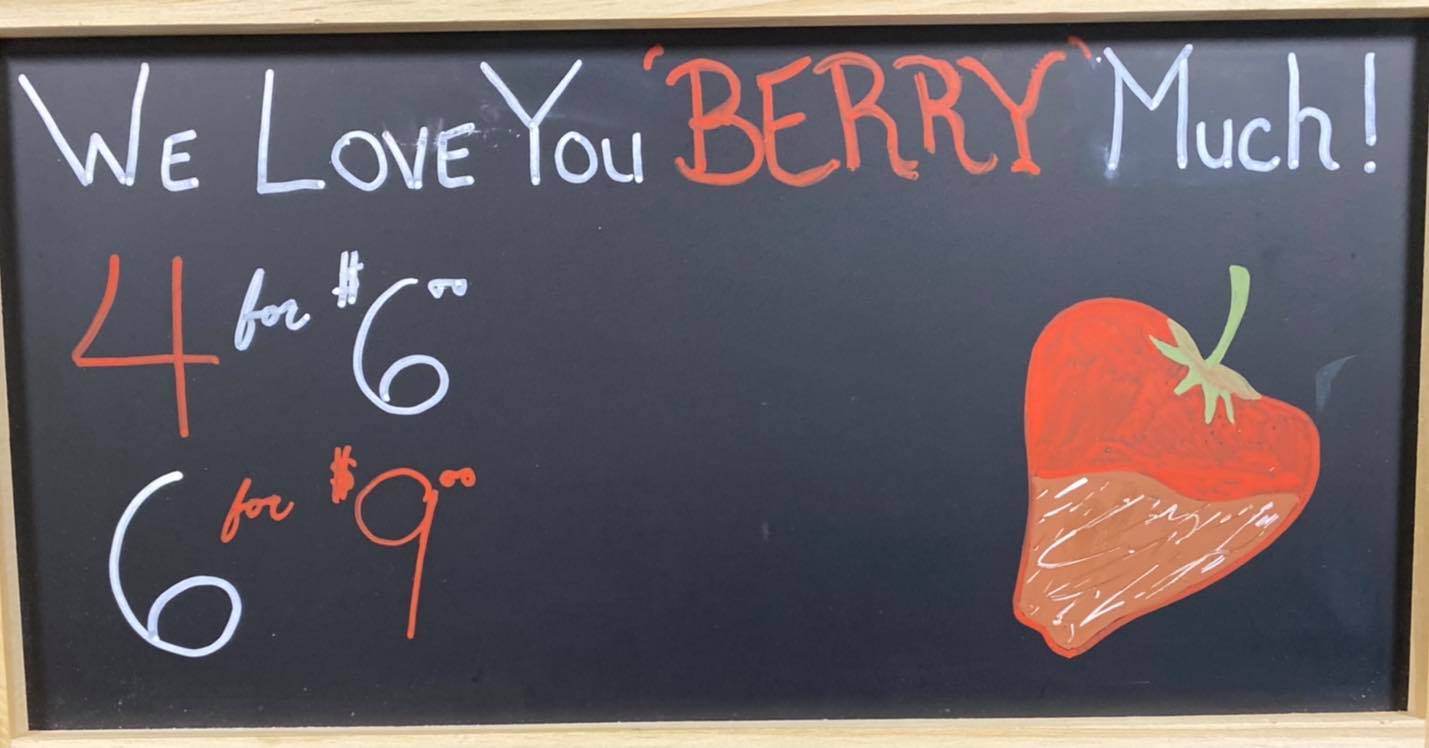 We Love You 'BERRY' Much!
4 for $6.00
6 for $9.00